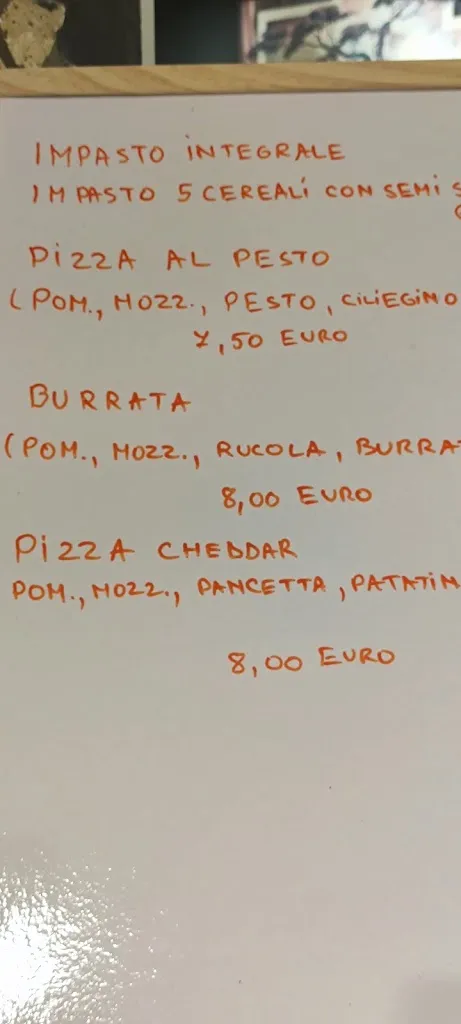 IMPASTO INTEGRALE
IMPASTO 5 CEREALI CON SEMI
PIZZA AL PESTO
(POM., MOZZ., PESTO, CILIEGINO
7,50 EURO
BURRATA
(POM., MOZZ., RUCOLA, BURRA
8,00 EURO
PIZZA CHEDDAR
POM., MOZZ., PANCETTA, PATATIN
8,00 EURO